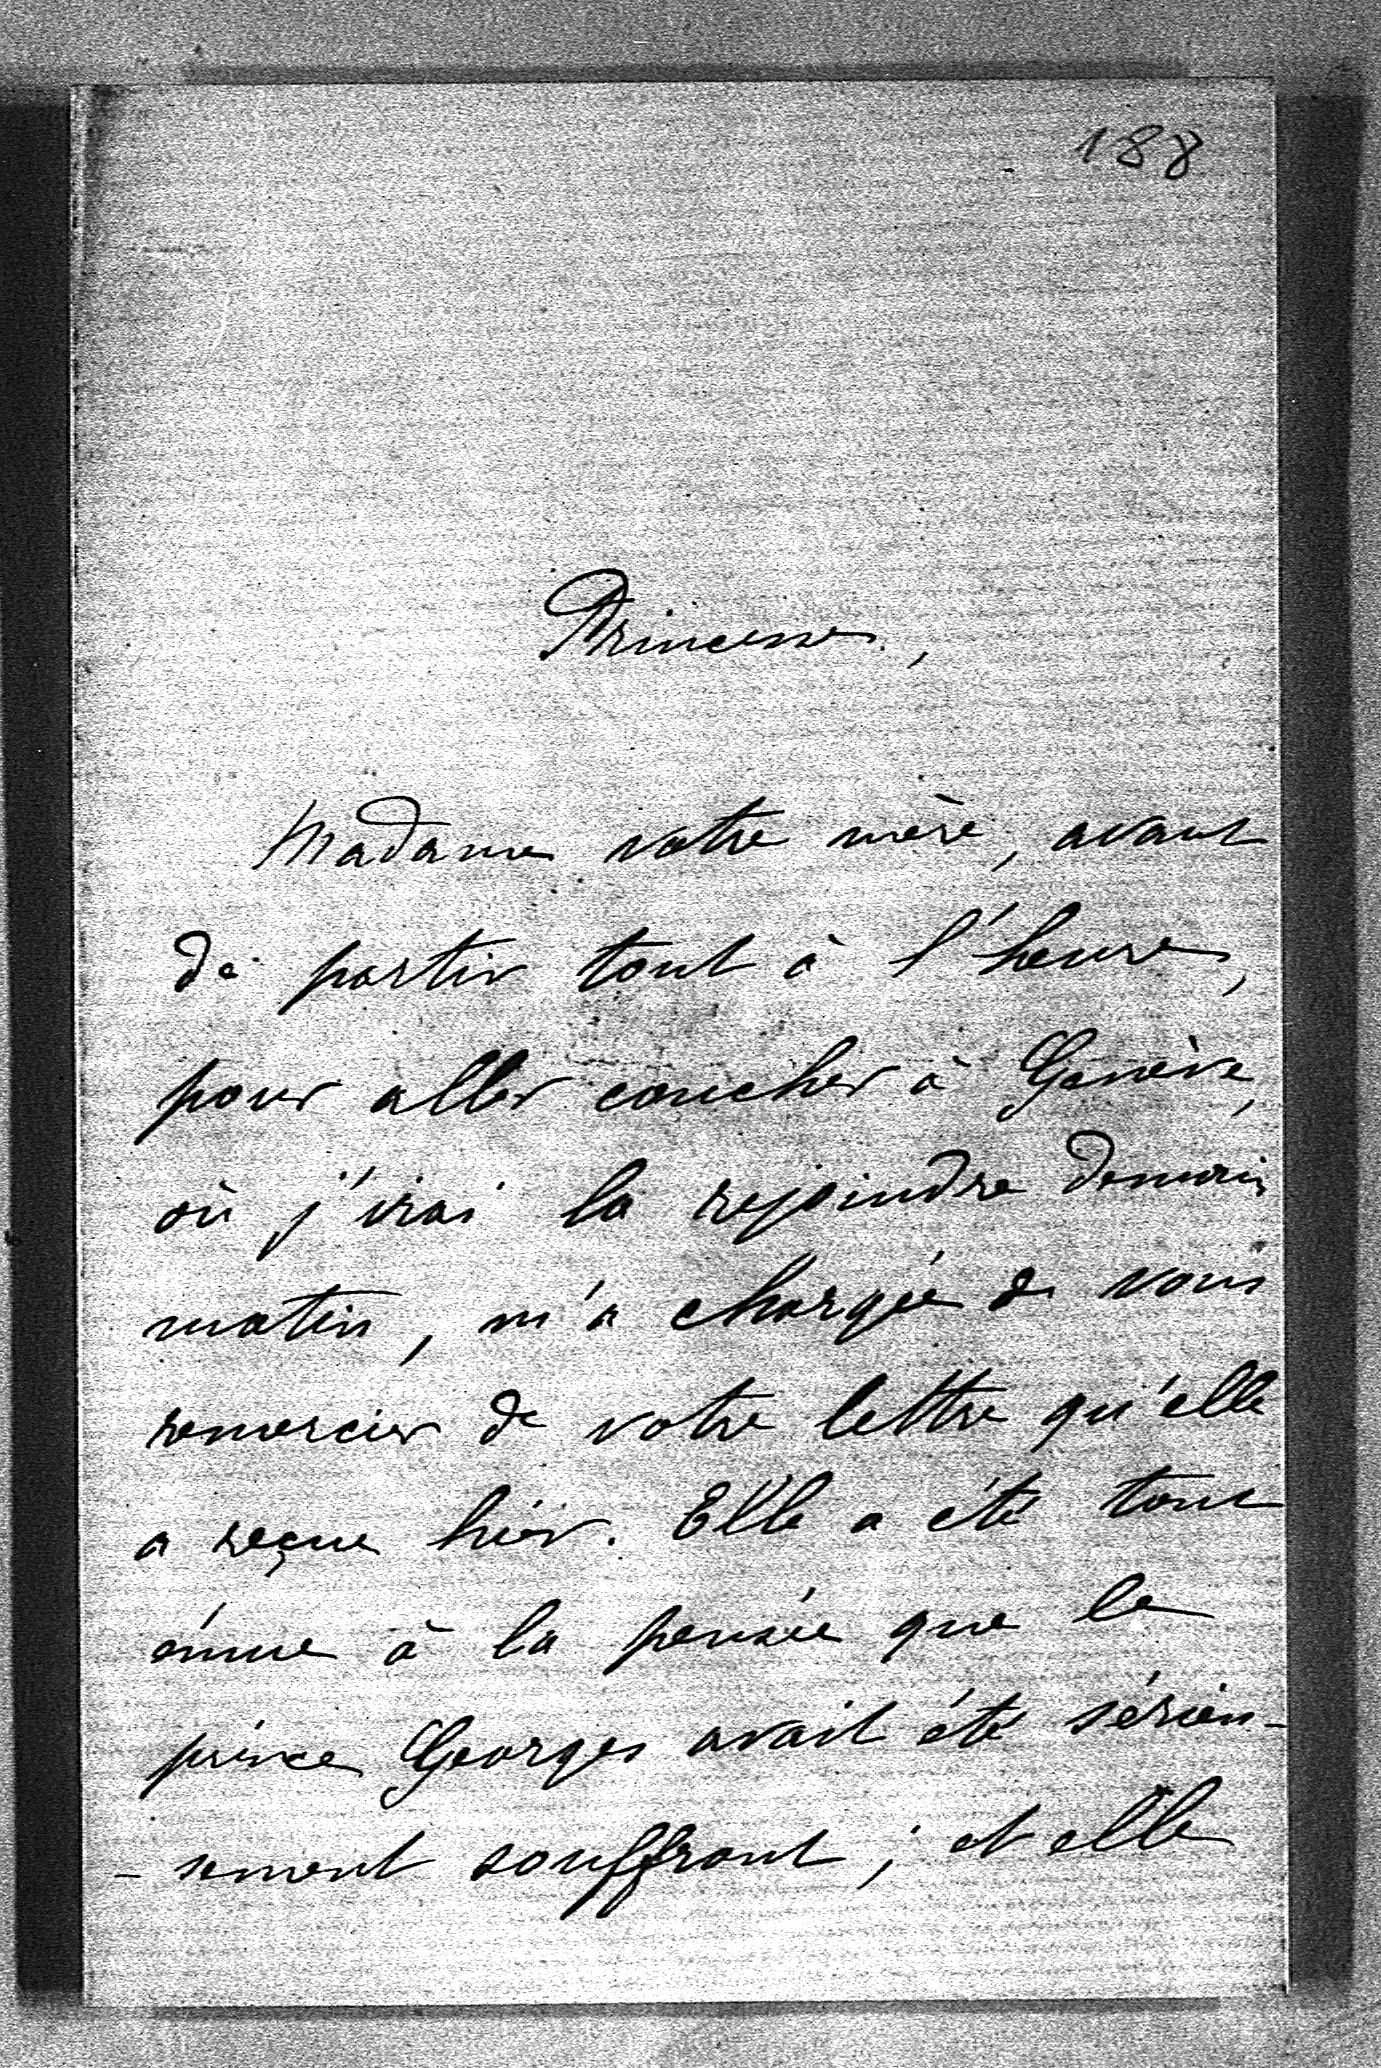 188
Princesse,
Madame votre mère, avant
de partir tout à l'heure,
pour aller coucher à Genève,
où j'irai la rejoindre demain
matin, m'a chargée de vous
remercier de votre lettre qu'elle
a reçue hier. Elle a été tout
émue à la pensée que le
prince Georges avait été sérieu-
-sement souffrant ; et elle